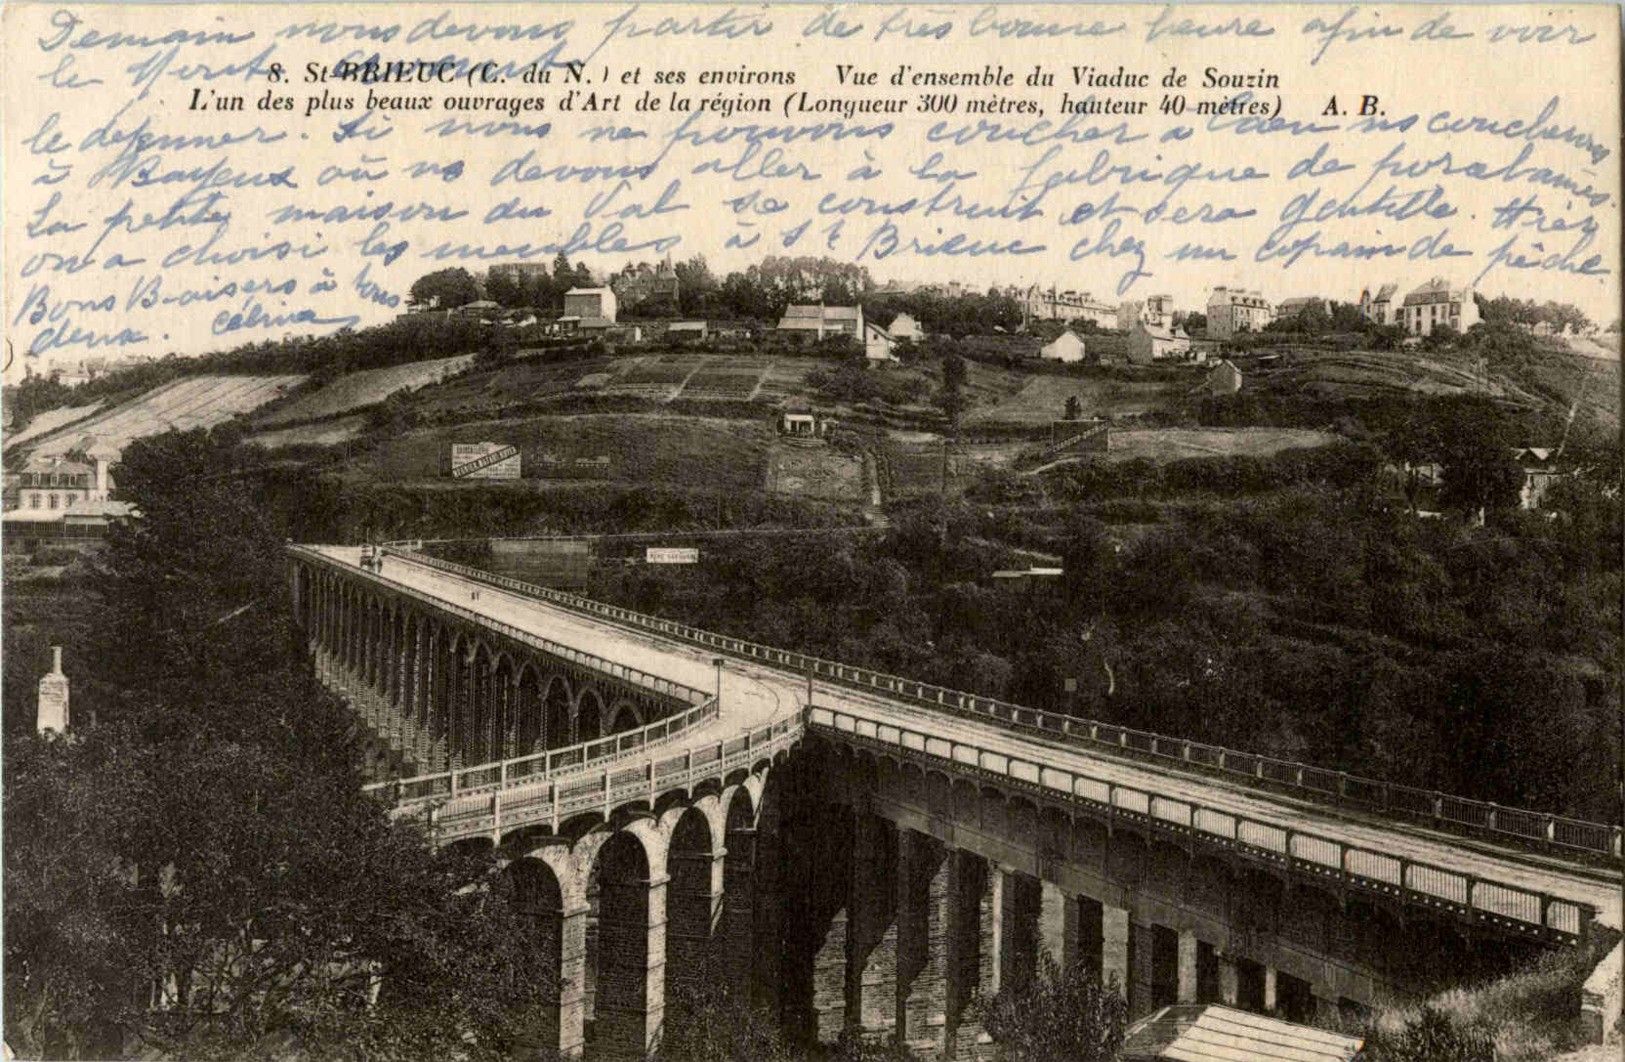 Demain nous devons partir de très bonne heure afin de voir
le Mont avant
8. St-BRIEUC (C. du N.) et ses environs Vue d'ensemble du Viaduc de Souzin
L'un des plus beaux ouvrages d'Art de la région (Longueur 300 mètres, hauteur 40 mètres) A. B.
le dejeuner. Si nous ne pouvons coucher a Caen ns coucherons
à Bayeux où ns devons aller à la fabrique de porcelaines.
La petite maison du Val se construit et sera gentille. Hier
on a choisi les meubles à St Brieuc chez un copain de pêche.
Bons Baisers à tous
deux. Célina